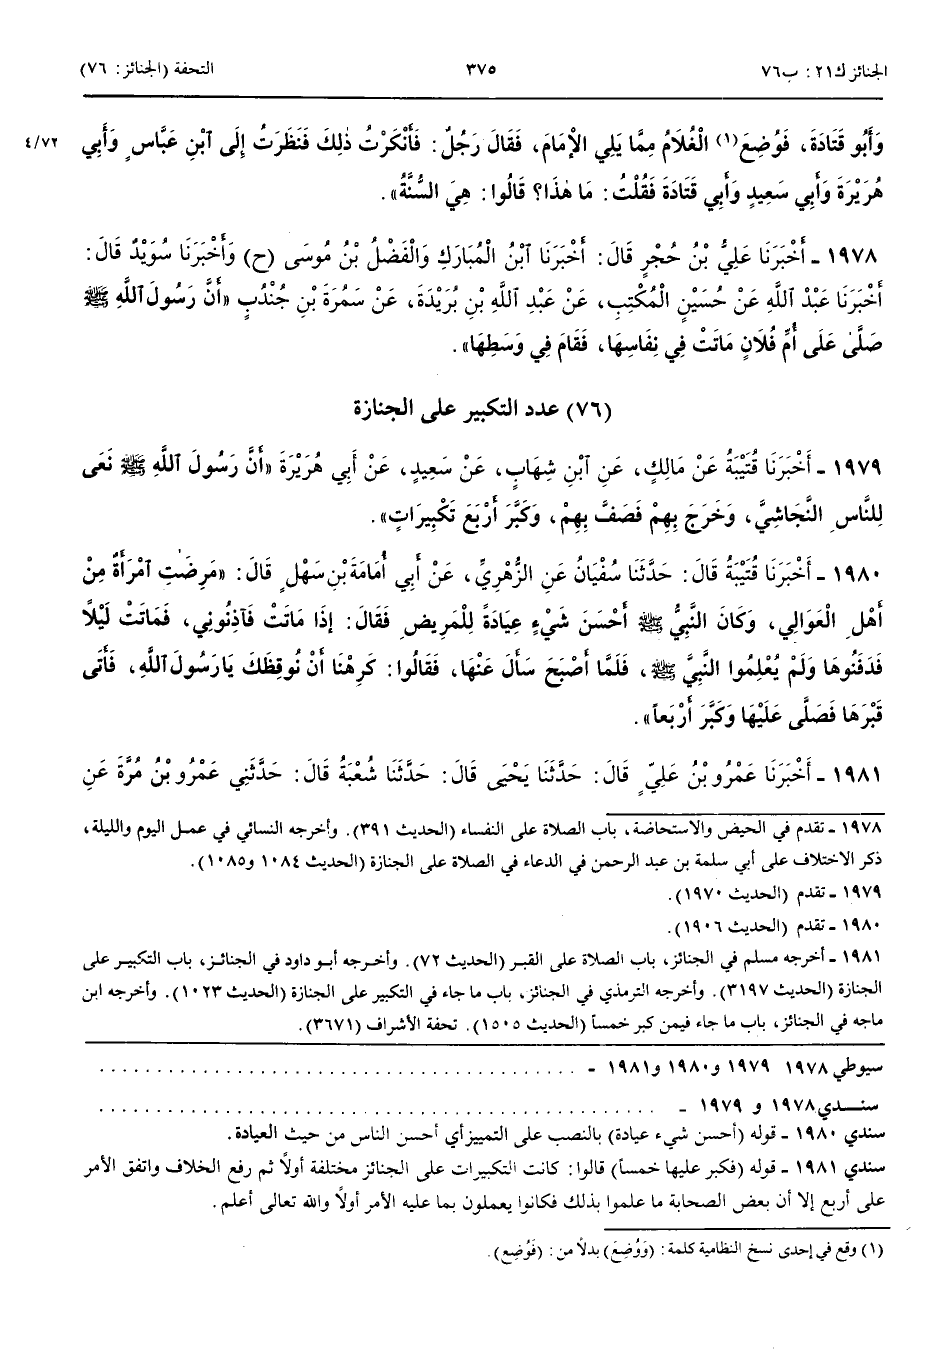 الجنائز ك٢١ : ب٧٦ ٣٧٥ التحفة (الجنائز: ٧٦)
وَأَبُو قَتَادَةَ، فَوُضِعَ(١) الْغُلَامُ مِمَّا يَلِي الْإِمَامَ، فَقَالَ رَجُلٌ: فَأَنْكَرْتُ ذٰلِكَ فَنَظَرْتُ إِلَى ٱبْنِ عَبَّاسٍ وَأَبِي ٤/٧٢
هُرَيْرَةَ وَأَبِي سَعِيدٍ وَأَبِي قَتَادَةَ فَقُلْتُ: مَا هٰذَا؟ قَالُوا: هِيَ السُّنَّةُ».
١٩٧٨ ـ أَخْبَرَنَا عَلِيُّ بْنُ حُجْرٍ قَالَ: أَخْبَرَنَا ٱبْنُ الْمُبَارَكِ وَالْفَضْلُ بْنُ مُوسَى (ح) وَأَخْبَرَنَا سُوَيْدٌ قَالَ:
أَخْبَرَنَا عَبْدُ ٱللَّهِ عَنْ حُسَيْنٍ الْمُكْتِبِ، عَنْ عَبْدِ ٱللَّهِ بْنِ بُرَيْدَةَ، عَنْ سَمُرَةَ بْنِ جُنْدُبٍ «أَنَّ رَسُولَ ٱللَّهِ ﷺ
صَلَّىٰ عَلَى أُمِّ فُلَانٍ مَاتَتْ فِي نِفَاسِهَا، فَقَامَ فِي وَسَطِهَا».
(٧٦) عدد التكبير على الجنازة
١٩٧٩ ـ أَخْبَرَنَا قُتَيْبَةُ عَنْ مَالِكٍ، عَنِ ٱبْنِ شِهَابٍ، عَنْ سَعِيدٍ، عَنْ أَبِي هُرَيْرَةَ «أَنَّ رَسُولَ ٱللَّهِ ﷺ نَعَى
لِلنَّاسِ النَّجَاشِيَّ، وَخَرَجَ بِهِمْ فَصَفَّ بِهِمْ، وَكَبَّرَ أَرْبَعَ تَكْبِيرَاتٍ».
١٩٨٠ ـ أَخْبَرَنَا قُتَيْبَةُ قَالَ: حَدَّثَنَا سُفْيَانُ عَنِ الزُّهْرِيِّ، عَنْ أَبِي أُمَامَةَ بْنِ سَهْلٍ قَالَ: «مَرِضَتِ ٱمْرَأَةٌ مِنْ
أَهْلِ الْعَوَالِي، وَكَانَ النَّبِيُّ ﷺ أَحْسَنَ شَيْءٍ عِيَادَةً لِلْمَرِيضِ فَقَالَ: إِذَا مَاتَتْ فَآذِنُونِي، فَمَاتَتْ لَيْلًا
فَدَفَنُوهَا وَلَمْ يُعْلِمُوا النَّبِيَّ ﷺ، فَلَمَّا أَصْبَحَ سَأَلَ عَنْهَا، فَقَالُوا: كَرِهْنَا أَنْ نُوقِظَكَ يَا رَسُولَ ٱللَّهِ، فَأَتَى
قَبْرَهَا فَصَلَّى عَلَيْهَا وَكَبَّرَ أَرْبَعاً».
١٩٨١ ـ أَخْبَرَنَا عَمْرُو بْنُ عَلِيٍّ قَالَ: حَدَّثَنَا يَحْيَى قَالَ: حَدَّثَنَا شُعْبَةُ قَالَ: حَدَّثَنِي عَمْرُو بْنُ مُرَّةَ عَنِ
١٩٧٨ ـ تقدم في الحيض والاستحاضة، باب الصلاة على النفساء (الحديث ٣٩١). وأخرجه النسائي في عمل اليوم والليلة،
ذكر الاختلاف على أبي سلمة بن عبد الرحمن في الدعاء في الصلاة على الجنازة (الحديث ١٠٨٤ و١٠٨٥).
١٩٧٩ ـ تقدم (الحديث ١٩٧٠).
١٩٨٠ ـ تقدم (الحديث ١٩٠٦).
١٩٨١ ـ أخرجه مسلم في الجنائز، باب الصلاة على القبر (الحديث ٧٢). وأخرجه أبو داود في الجنائز، باب التكبير على
الجنازة (الحديث ٣١٩٧). وأخرجه الترمذي في الجنائز، باب ما جاء في التكبير على الجنازة (الحديث ١٠٢٣). وأخرجه ابن
ماجه في الجنائز، باب ما جاء فيمن كبر خمساً (الحديث ١٥٠٥). تحفة الأشراف (٣٦٧١).
سيوطي ١٩٧٨ ١٩٧٩ و١٩٨٠ و١٩٨١ ـ ........................................
سندي ١٩٧٨ و ١٩٧٩ ـ ........................................
سندي ١٩٨٠ ـ قوله (أحسن شيء عيادة) بالنصب على التمييز أي أحسن الناس من حيث العيادة.
سندي ١٩٨١ ـ قوله (فكبر عليها خمساً) قالوا: كانت التكبيرات على الجنائز مختلفة أولاً ثم رفع الخلاف واتفق الأمر
على أربع إلا أن بعض الصحابة ما علموا بذلك فكانوا يعملون بما عليه الأمر أولاً والله تعالى أعلم.
(١) وقع في إحدى نسخ النظامية كلمة: (وَوُضِعَ) بدلاً من: (فَوُضِع).